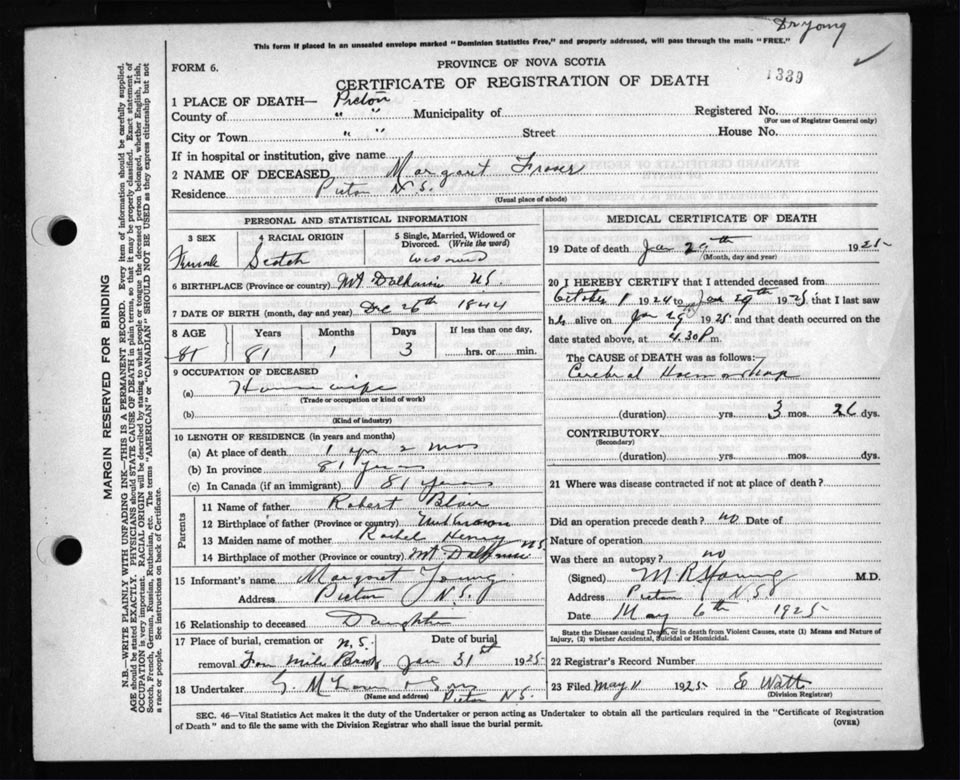 Dr Young
This form if placed in an unsealed envelope marked "Dominion Statistics Free," and properly addressed, will pass through the mails "FREE."
PROVINCE OF NOVA SCOTIA
FORM 6.
CERTIFICATE OF REGISTRATION OF DEATH
1339
1 PLACE OF DEATH— Pictou
County of " " Municipality of Registered No.
(For use of Registrar General only)
City or Town " " Street House No.
If in hospital or institution, give name
2 NAME OF DECEASED Margaret Fraser
Residence Pictou N.S.
(Usual place of abode)
PERSONAL AND STATISTICAL INFORMATION
3 SEX 4 RACIAL ORIGIN 5 Single, Married, Widowed or Divorced. (Write the word)
Female Scotch widowed
6 BIRTHPLACE (Province or country) Mt Dalhousie NS.
7 DATE OF BIRTH (month, day and year) Dec 26th 1844
8 AGE Years Months Days If less than one day,
81 81 1 3 hrs. or min.
9 OCCUPATION OF DECEASED
(a) Housewife
(Trade or occupation or kind of work)
(b)
(Kind of industry)
10 LENGTH OF RESIDENCE (in years and months)
(a) At place of death 1 yr 2 mos
(b) In province 81 years
(c) In Canada (if an immigrant) 81 years
Parents
11 Name of father Robert Blair
12 Birthplace of father (Province or country) Unknown
13 Maiden name of mother Rachel Henry
14 Birthplace of mother (Province or country) Mt Dalhousie N.S.
15 Informant's name Margaret Young
Address Pictou N.S.
16 Relationship to deceased Daughter
17 Place of burial, cremation or removal Four Mile Brook N.S. Date of burial Jan 31st 1925
18 Undertaker & Sons
(Name and address) Pictou N.S.
MEDICAL CERTIFICATE OF DEATH
19 Date of death Jan 29th 1925
(Month, day and year)
20 I HEREBY CERTIFY that I attended deceased from
October 1 1924 to Jan 29th 1925, that I last saw
her alive on Jan 29th 1925 and that death occurred on the
date stated above, at 4.30 P m.
The CAUSE OF DEATH was as follows:
Cerebral Haemorrhage
(duration) yrs. 3 mos. 26 dys.
CONTRIBUTORY
(Secondary)
(duration) yrs. mos. dys.
21 Where was disease contracted if not at place of death?
Did an operation precede death? no Date of
Nature of operation
Was there an autopsy? no
(Signed) M R Young M.D.
Address Pictou N.S.
Date May 6th 1925
State the Disease causing Death, or in death from Violent Causes, state (1) Means and Nature of
Injury, (2) whether Accidental, Suicidal or Homicidal.
22 Registrar's Record Number
23 Filed May 11 1925 E Watt
(Division Registrar)
SEC. 46—Vital Statistics Act makes it the duty of the Undertaker or person acting as Undertaker to obtain all the particulars required in the "Certificate of Registration
of Death" and to file the same with the Division Registrar who shall issue the burial permit.
(OVER)
MARGIN RESERVED FOR BINDING
N.B.—WRITE PLAINLY WITH UNFADING INK—THIS IS A PERMANENT RECORD. Every item of information should be carefully supplied.
AGE should be stated EXACTLY. PHYSICIANS should STATE CAUSE OF DEATH in plain terms, so that it may be properly classified. Exact statement of
OCCUPATION is very important. RACIAL ORIGIN will be described by stating to what people or tongue the deceased person belonged, whether English, Irish,
Scotch, French, German, Russian, Ruthenian, etc. The terms "AMERICAN" or "CANADIAN" SHOULD NOT BE USED as they express citizenship but not
a race or people. See instructions on back of Certificate.